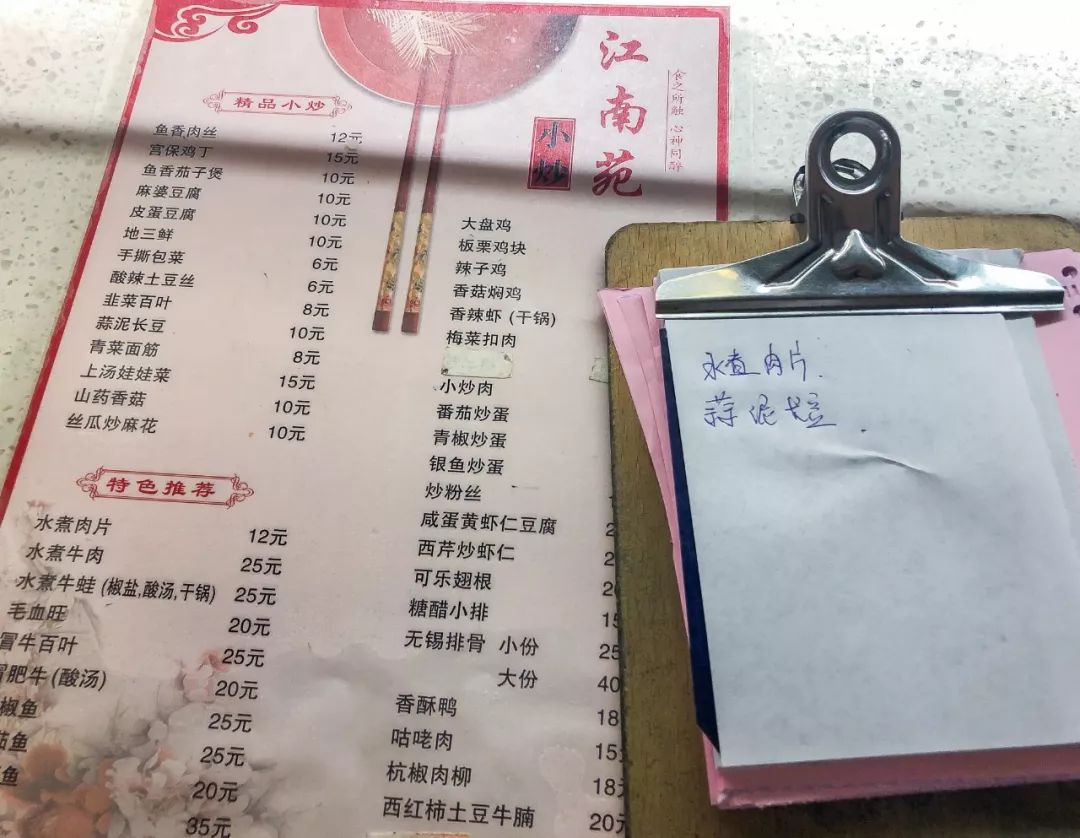 江南苑
小炒
食之所触 心神同醉
精品小炒
鱼香肉丝 12元
宫保鸡丁 15元
鱼香茄子煲 10元
麻婆豆腐 10元
皮蛋豆腐 10元
地三鲜 10元
手撕包菜 6元
酸辣土豆丝 6元
韭菜百叶 8元
蒜泥长豆 10元
青菜面筋 8元
上汤娃娃菜 15元
山药香菇 10元
丝瓜炒麻花 10元
特色推荐
水煮肉片 12元
水煮牛肉 25元
水煮牛蛙 (椒盐,酸汤,干锅) 25元
毛血旺 20元
冒牛百叶 25元
肥牛 (酸汤) 20元
椒鱼 25元
鱼 25元
鱼 20元
35元
大盘鸡
板栗鸡块
辣子鸡
香菇焖鸡
香辣虾 (干锅)
梅菜扣肉
小炒肉
番茄炒蛋
青椒炒蛋
银鱼炒蛋
炒粉丝
咸蛋黄虾仁豆腐
西芹炒虾仁
可乐翅根
糖醋小排 15
无锡排骨 小份 25
大份 40
香酥鸭 18
咕咾肉 15
杭椒肉柳 18元
西红柿土豆牛腩 20元
水煮肉片
蒜泥长豆